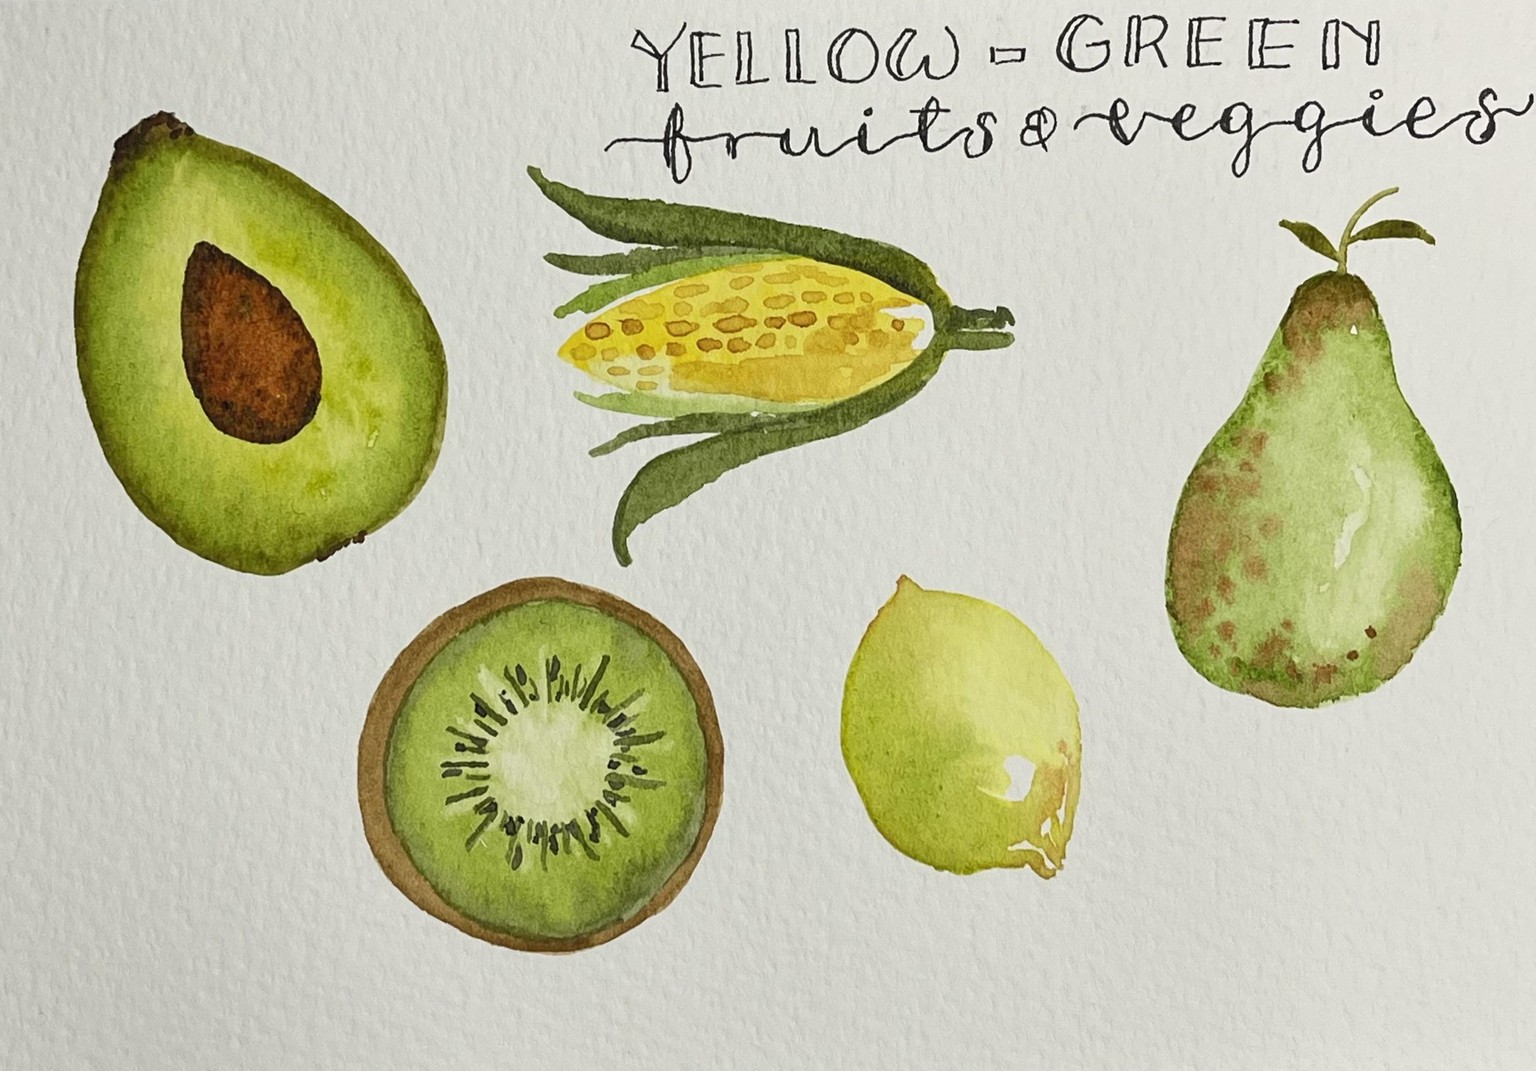 YELLOW - GREEN
fruits & veggies